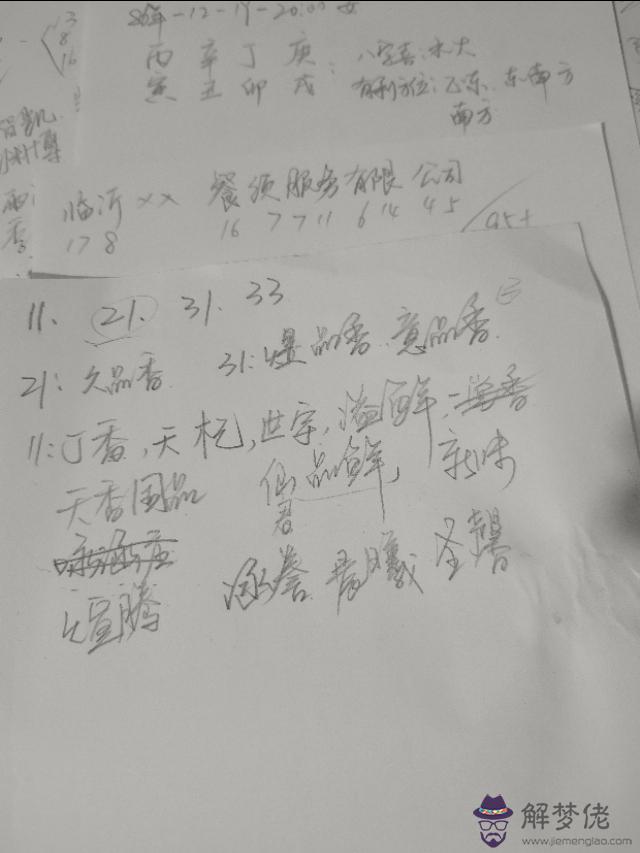 13
8
16
86年-12-19-20:00 女
丙 辛 丁 庚
寅 丑 卯 戌
八字喜:木火
有利方位:正东、东南方
南方
临沂×× 餐饮服务有限公司
17 8 16 7 7 11 6 14 4 5
95+
11、 21、 31、 33
21: 久品香 31: 煜品香、意品香
11: 丁香,天杞,世宇,溢鲜,一学香
天香国品 仙品鲜, 新味
君
煊腾 泳誉 君曦 圣馨
解梦佬
www.jiemenglao.com